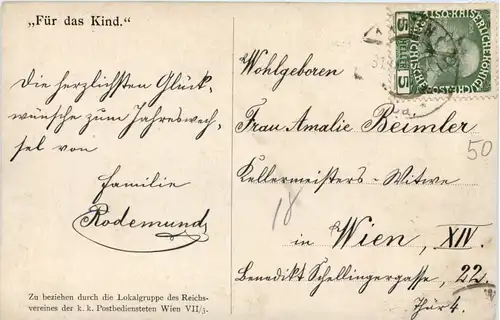 „Für das Kind.“
Die herzlichsten Glück-
wünsche zum Jahreswech-
sel von
Familie
Rodemund
Zu beziehen durch die Lokalgruppe des Reichs-
vereines der k. k. Postbediensteten Wien VII/3.
5 HELLER 5
Wohlgeboren
Frau Amalie Beimler
Kellermeisters-Witwe
in Wien, XIV.
Benedikt Schellingergasse, 22.
Thür 4.
50
18